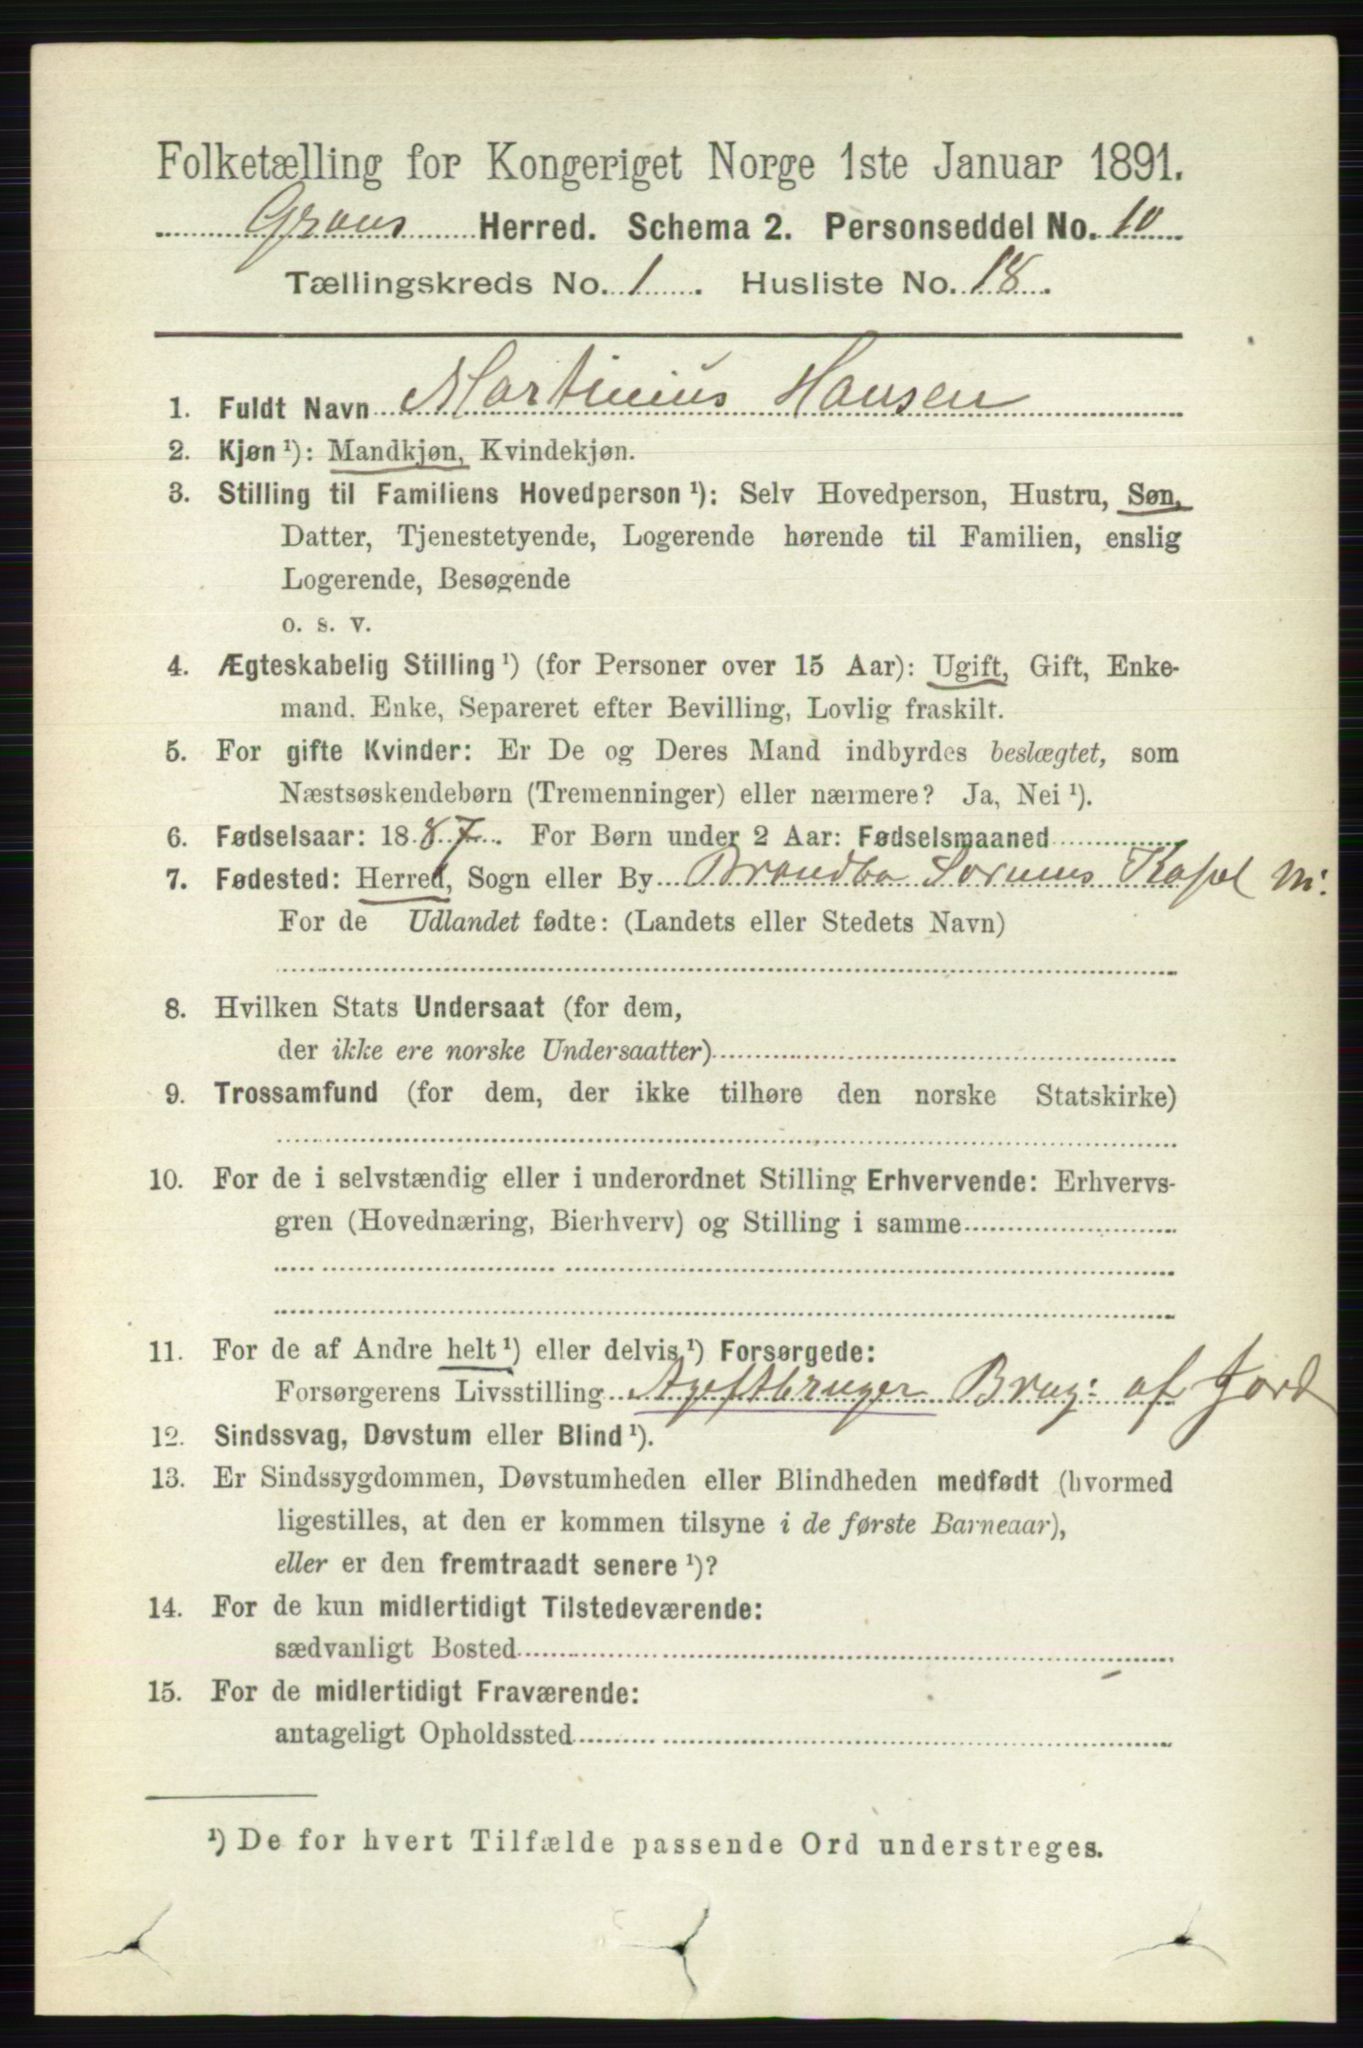 Folketælling for Kongeriget Norge 1ste Januar 1891.
Grans Herred. Schema 2. Personseddel No. 10
Tællingskreds No. 1. Husliste No. 18.
1. Fuldt Navn Martinius Hansen
2. Kjøn ¹): Mandkjøn, Kvindekjøn.
3. Stilling til Familiens Hovedperson ¹): Selv Hovedperson, Hustru, Søn,
Datter, Tjenestetyende, Logerende hørende til Familien, enslig
Logerende, Besøgende
o. s. v.
4. Ægteskabelig Stilling ¹) (for Personer over 15 Aar): Ugift, Gift, Enke-
mand, Enke, Separeret efter Bevilling, Lovlig fraskilt.
5. For gifte Kvinder: Er De og Deres Mand indbyrdes beslægtet, som
Næstsøskendebørn (Tremenninger) eller nærmere? Ja, Nei ¹).
6. Fødselsaar: 1887. For Børn under 2 Aar: Fødselsmaaned
7. Fødested: Herred, Sogn eller By Brandbo Sørums Kapel
For de Udlandet fødte: (Landets eller Stedets Navn)
8. Hvilken Stats Undersaat (for dem,
der ikke ere norske Undersaatter)
9. Trossamfund (for dem, der ikke tilhøre den norske Statskirke)
10. For de i selvstændig eller i underordnet Stilling Erhvervende: Erhvervs-
gren (Hovednæring, Bierhverv) og Stilling i samme
11. For de af Andre helt ¹) eller delvis ¹) Forsørgede:
Forsørgerens Livsstilling Brug: af Jord
12. Sindssvag, Døvstum eller Blind ¹).
13. Er Sindssygdommen, Døvstumheden eller Blindheden medfødt (hvormed
ligestilles, at den er kommen tilsyne i de første Barneaar),
eller er den fremtraadt senere ¹)?
14. For de kun midlertidigt Tilstedeværende:
sædvanligt Bosted
15. For de midlertidigt Fraværende:
antageligt Opholdssted
¹) De for hvert Tilfælde passende Ord understreges.